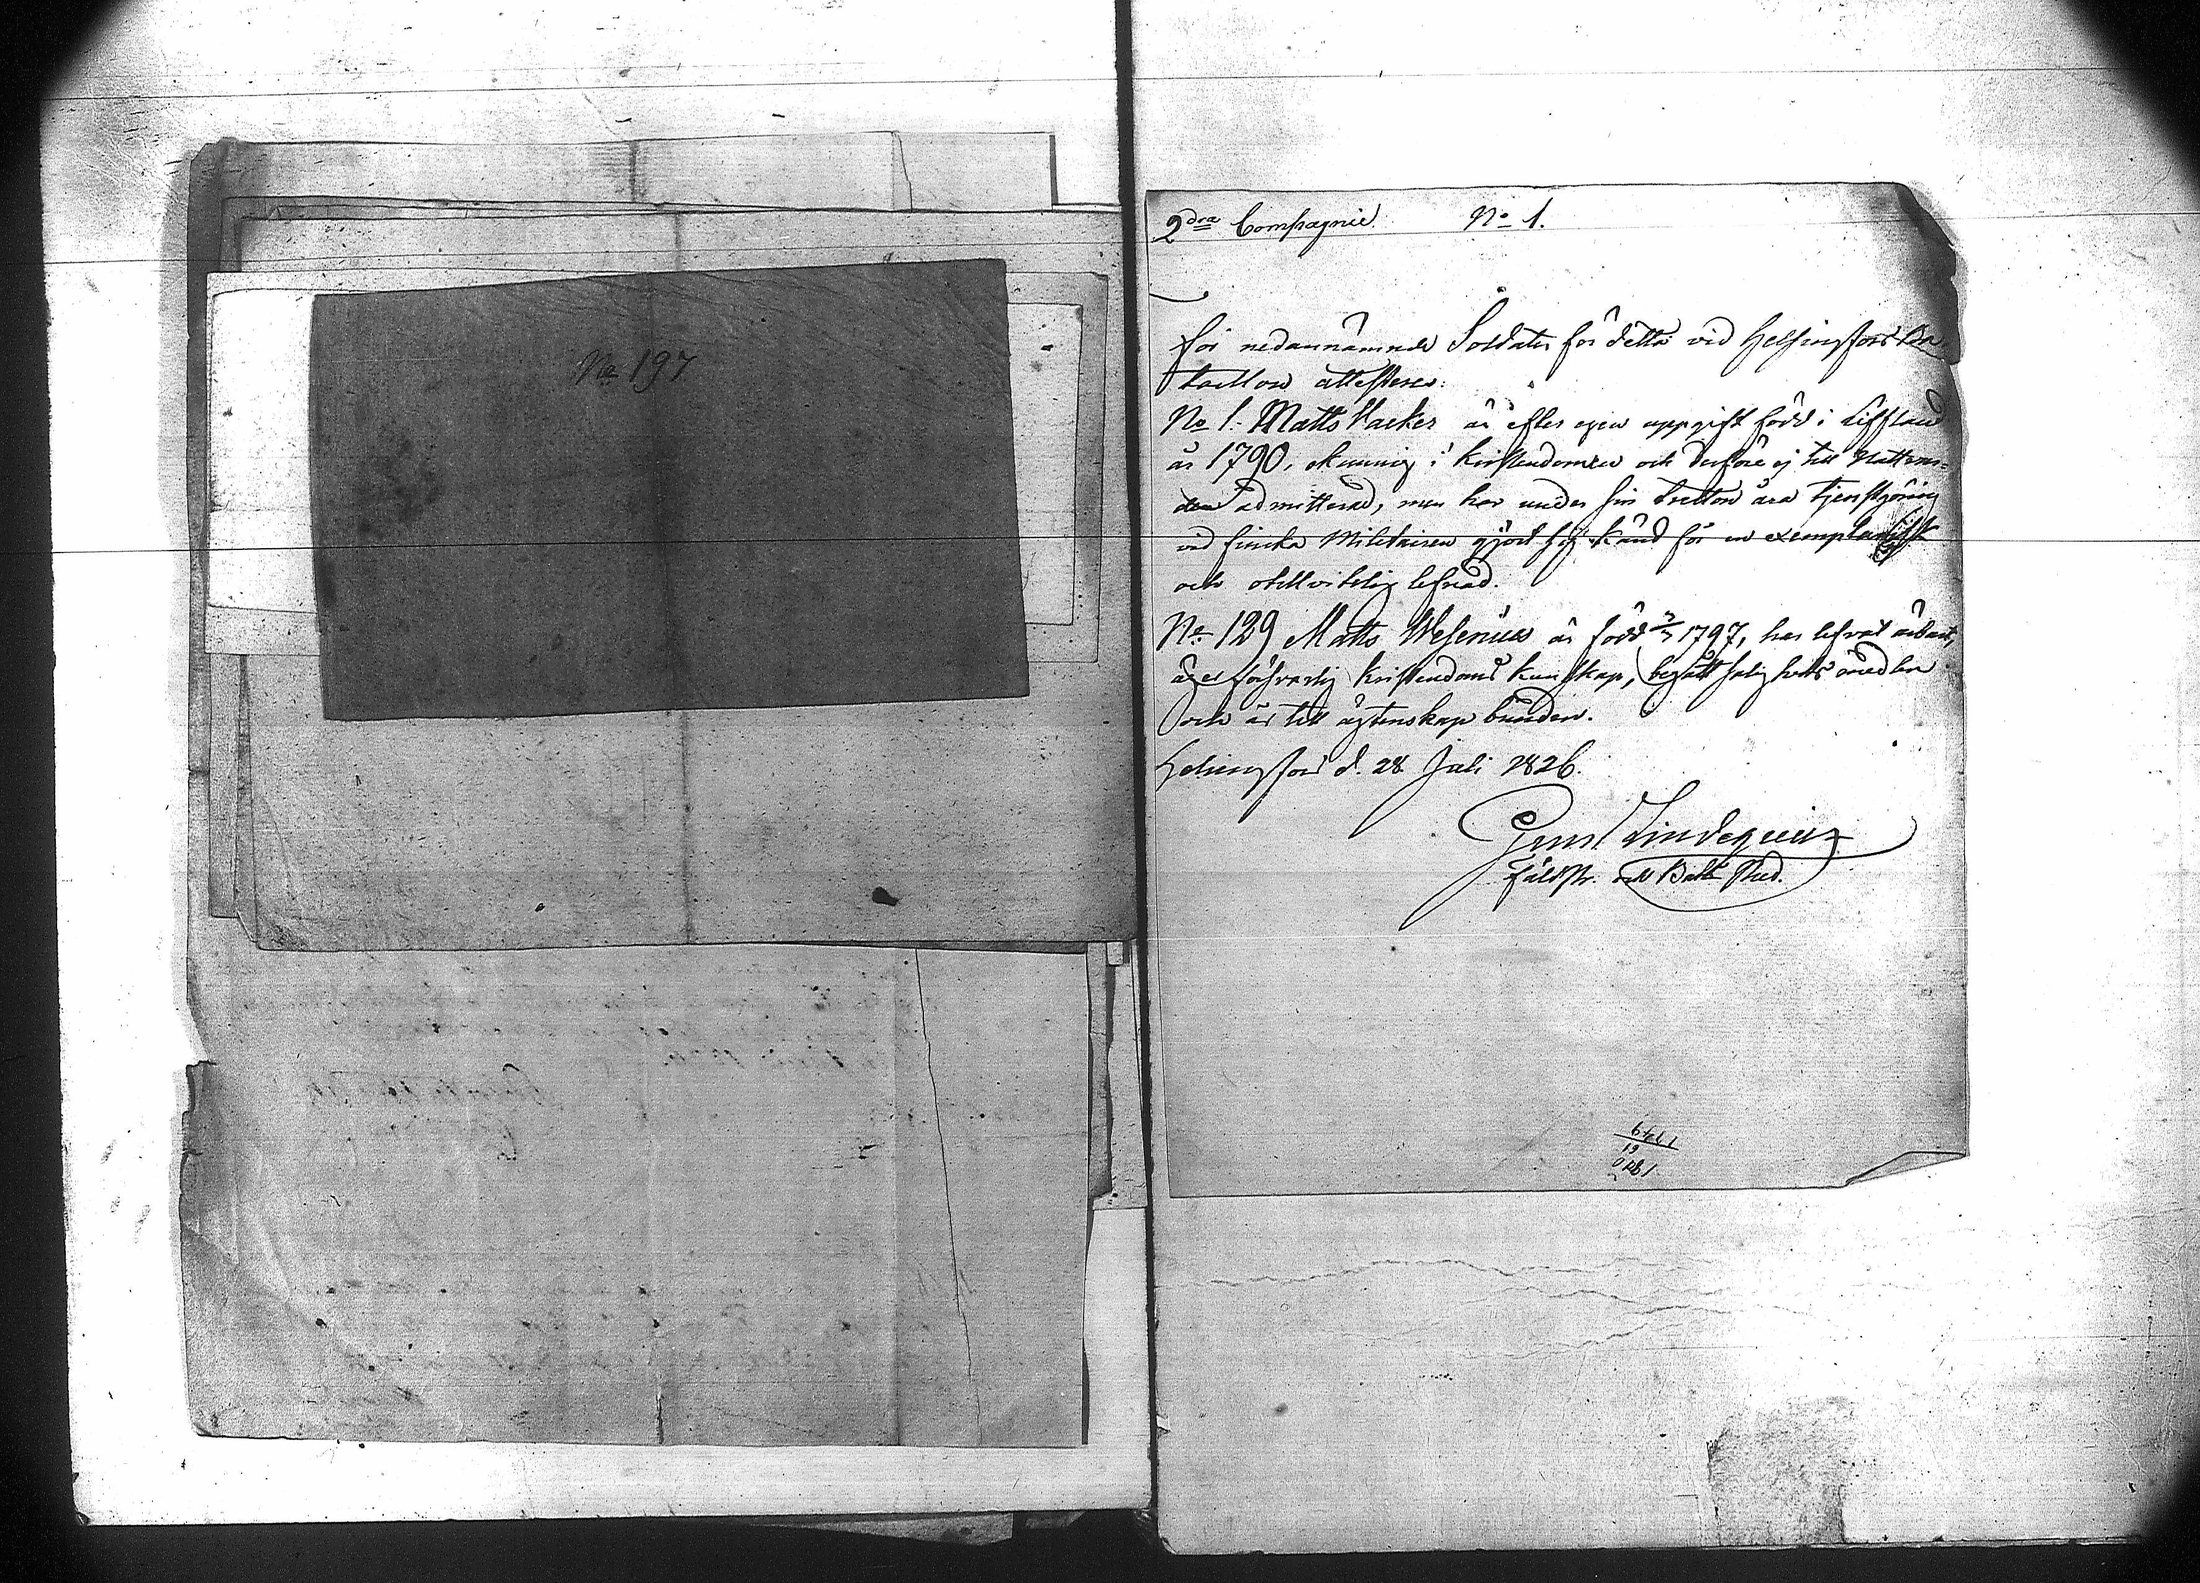 No 197
2dra Compagnie. No 1.
För nedannämnde Soldater för detta vid Helsingfors Ba-
taillon attesteres:
No 1. Matts Wacker är efter egen uppgift född i Liffland
år 1790, okunnig i kristendomen och derföre ej till Nattvar-
den admitterad, men har under sin tretton åra tjenstgöring
vid finska Militairen gjort sig känd för en exemplarisk
och oklanderlig lefnad.
No 129 Matts Wesenius är född 1797, har lefvat ärbart,
äger försvarlig kristendoms kunskap, begått salighets medlen
och är till äktenskap bunden.
Helsingfors d. 28 Juli 1826.
Gust Lindequist
Fältpr. och Batt. Pred.